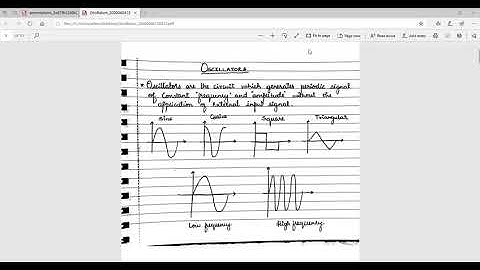 OSCILLATORS
* Oscillators are the circuit which generates periodic signal
of constant 'frequency' and 'amplitude' without the
application of external input signal.
Sine Cosine Square Triangular
Low frequency High frequency